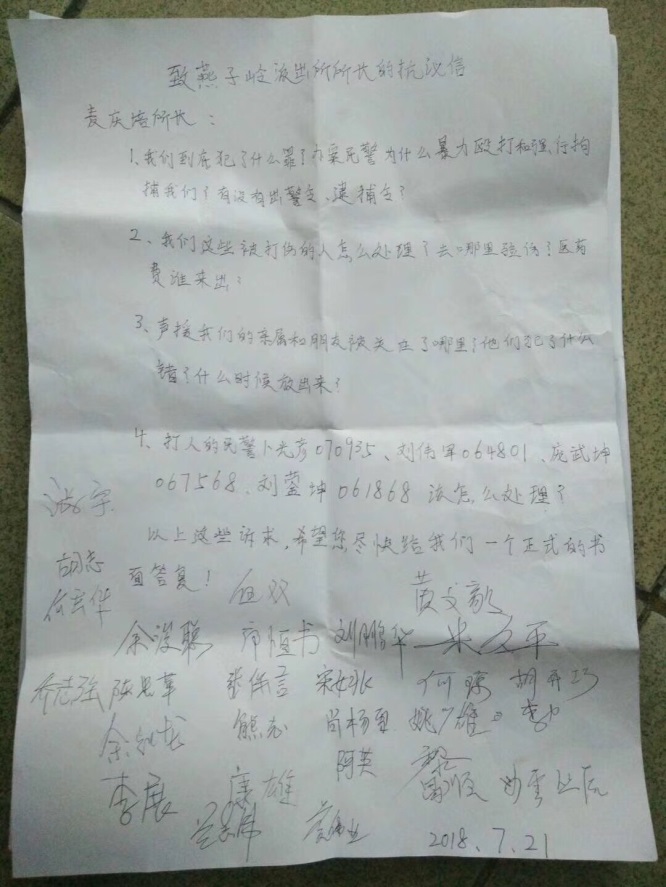 致燕子岭派出所所长的抗议信
麦庆培所长：
1、我们到底犯了什么罪？办案民警为什么暴力殴打和强行拘
捕我们？有没有出警令、逮捕令？
2、我们这些被打伤的人怎么处理？去哪里验伤？医药
费谁来出？
3、声援我们的亲属和朋友被关在了哪里？他们犯了什么
错？什么时候放出来？
4、打人的民警卜先彦070935、刘伟军064801、庞武坤
067568、刘蓥坤061868该怎么处理？
以上这些诉求，希望您尽快给我们一个正式的书
面答复！
胡志
伍双
余浚聪 邝恒书 刘鹏华 米久平
陈思革 张保言 何琼
熊 尚杨雪 姚广雄
阿英
李展 康雄
2018.7.21